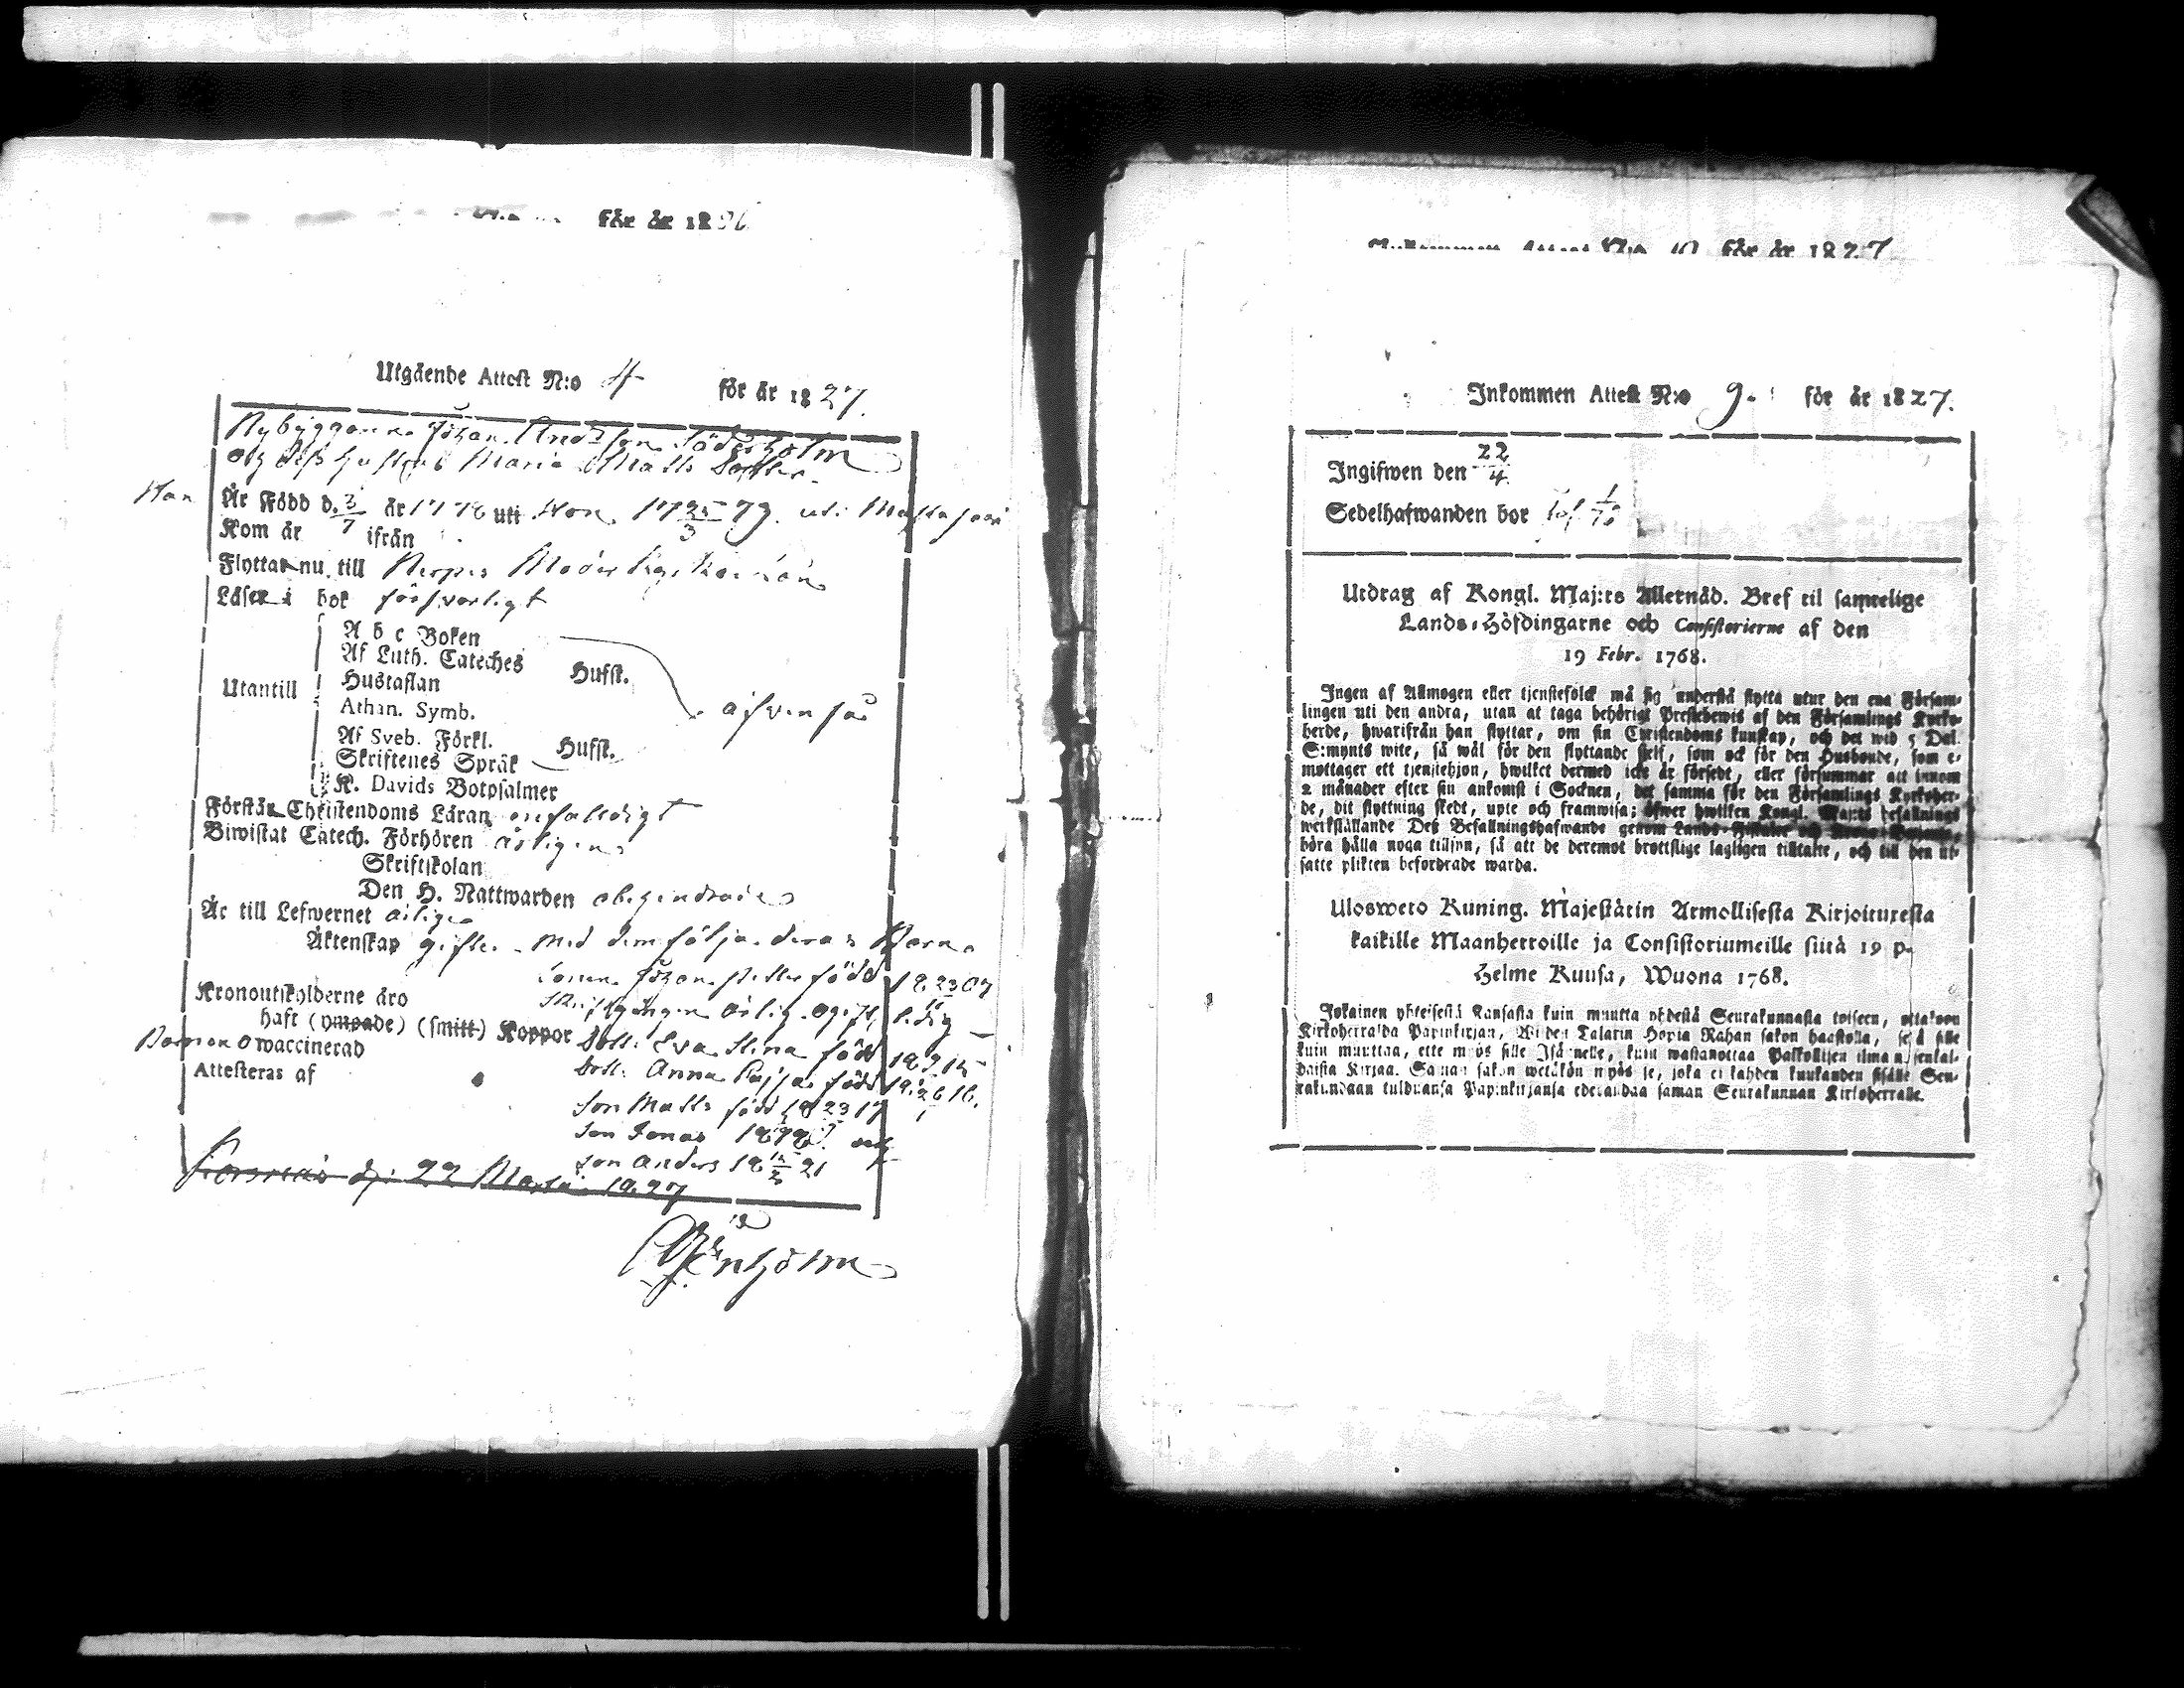 för år 1826
Utgående Attest N:o 4 för år 1827.
Nybyggaren Johan Andsson Söderholm
och dess hustru Maria Matts Dotter
Han
Är Född d. 3/7 år 1778 utt Hon 17 25/3 79. uti
Kom år ifrån
Flyttar nu till Nerpes Moder
Läser i bok försvarligt
Utantill
A b c Boken
Af Luth. Cateches Husst.
Hustaflan
Athan. Symb.
äfven så
Af Sveb. Förkl.
Skriftenes Språk Husst.
K. Davids Botpsalmer
Förstår Christendoms Läran enfaldigt
Biwistat Catech. Förhören årligen
Skriftskolan
Den H. Nattwarden obehindrade
Är till Lefwernet ärliga
Äktenskap gifte. med dem följa deras Barn
Sonen Johan Petter född 18 23/10 07
Skriftgången ärlig ogift, ledig
Kronoutskylderne äro
haft (ympade) (smitt) Koppor
Dott: Eva Stina född
Barnen o waccinerad
Dott: Anna Kajsa född
Attesteras af
Son Matts född 18 23 17
Son Jonas och
Son Anders 18 21
d: 22 Martii 1827
Inkommen Attest N:o 10 för år 1827
Inkommen Attest N:o 9. för år 1827.
Ingifwen den 22/4.
Sedelhafwanden bor
Utdrag af Kongl. Maj:ts Allernåd. Bref til samtelige
Lands-Höfdingarne och Consistorierne af den
19 Febr. 1768.
Ingen af Allmogen eller tjenstefolck må sig understå flytta utur den ena Försam-
lingen uti den andra, utan at taga behörigt Prestebewis af den Församlings Kyrko-
herde, hwarifrån han flyttar, om sin Christendoms kunskap, och det wid 5 Dal.
S:mynts wite, så wäl för den flyttande sjelf, som ock för den Husbonde, som e-
mottager ett tjenstehjon, hwilket dermed icke är försedt, eller försummar att innom
2 månader efter sin ankomst i Socknen, det samma för den Församlings Kyrkoher-
de, dit flyttning skedt, upte och framwisa; öfwer hwilken Kongl. Maj:ts befallnings
werkställande Deß Befallningshafwande genom Lands-Fiskaler och Krono-Betjente
böra hålla noga tillsyn, så att de deremot brottslige lagligen tilltalte, och till den ut-
satte plikten befordrade warda.
Ulosweto Kuning. Majestätin Armollisesta Kirjoituxesta
kaikille Maanherroille ja Consistoriumeille siitä 19 p.
Helme Kuusa, Wuona 1768.
Jokainen yhteisestä Kansasta kuin muutta yhdestä Seurakunnasta toiseen, ottakoon
Kirkoherralda Papinkirjan, Wiiden Talarin Hopia Rahan sakon haastolla, sekä sille
kuin muuttaa, ette myös sille Isännelle, kuin wastanottaa Palkollisen ilman senkal-
daista Kirjaa. Saman sakon wetäkön myös se, joka ei kahden kuukauden sisälle Seu-
rakundaan tulduansa Papinkirjansa edesandaa saman Seurakunnan Kirkoherralle.